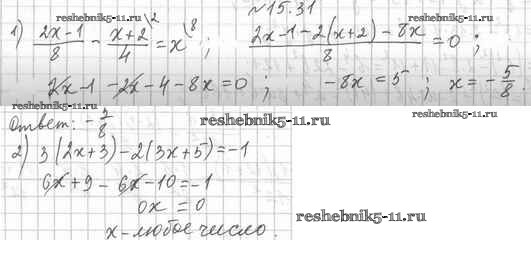 reshebnik5-11.ru
№15.31
1) (2x-1)/8 - (x+2)/4 \2 = x \8 ; (2x-1-2(x+2)-8x)/8 = 0 ;
2x-1-2x-4-8x=0 ; -8x=5 ; x=-5/8.
reshebnik5-11.ru
Ответ: -5/8
reshebnik5-11.ru
2) 3(2x+3)-2(3x+5)=-1
6x+9-6x-10=-1
0x=0
reshebnik5-11.ru
x-любое число.